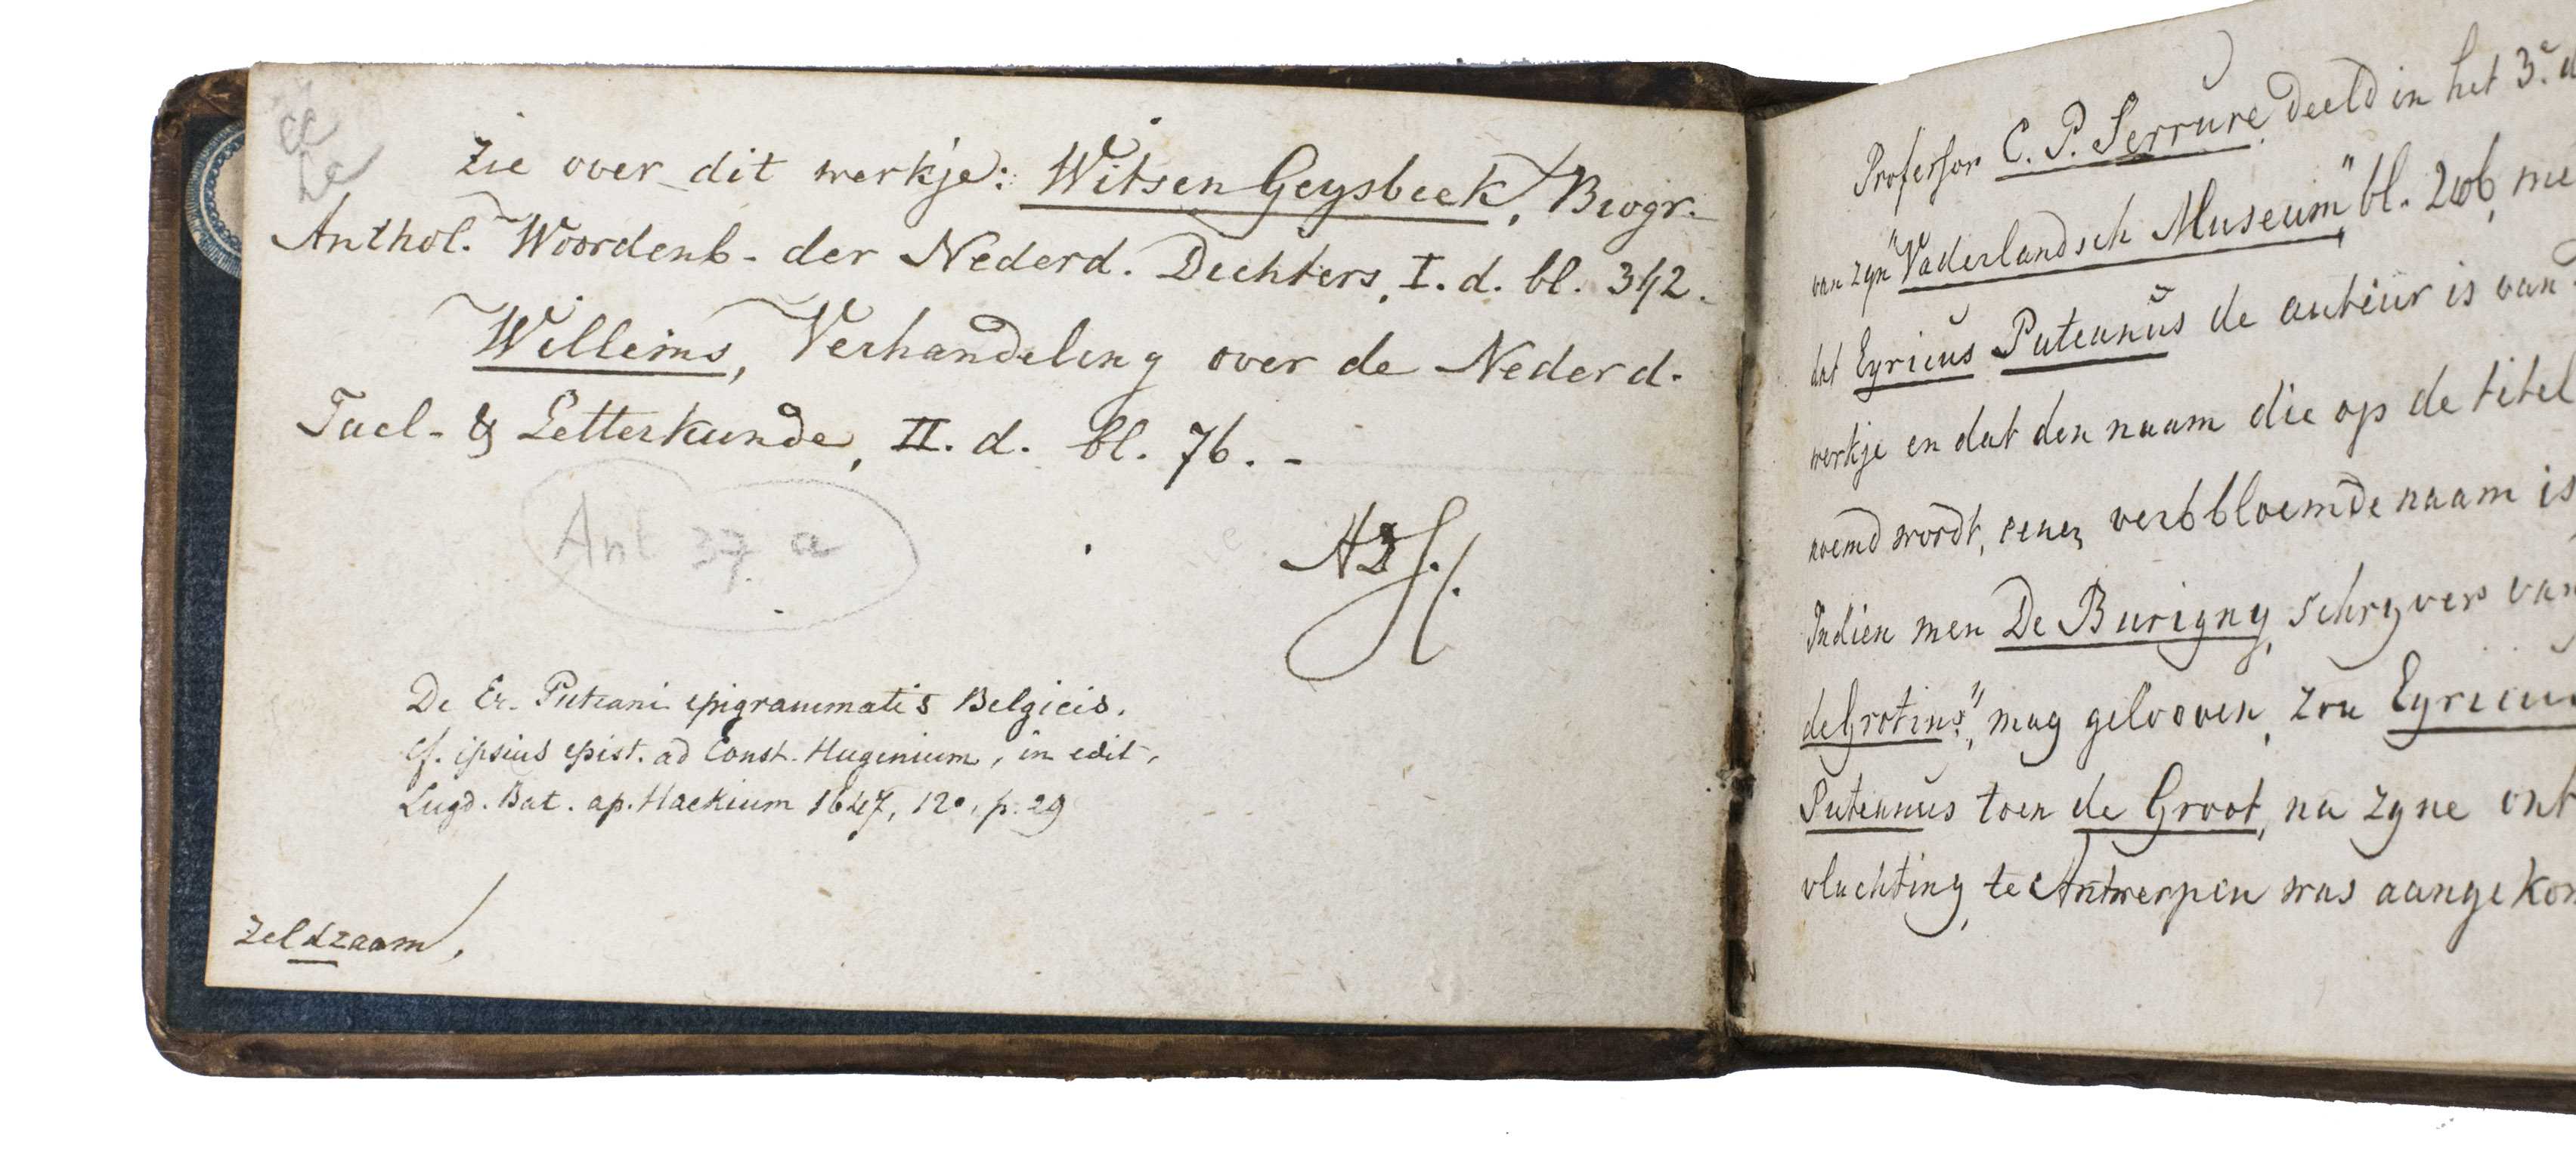 Zie over dit werkje: Witsen Geysbeek, Biogr.
Anthol. Woordenb. der Nederd. Dichters, I. d. bl. 342.
Willems, Verhandeling over de Nederd.
Tael- & Letterkunde, II. d. bl. 76. -
Ant 37 a
De Er. Puteani epigrammatis Belgicis.
cf. ipsius epist. ad Const. Hugenium, in edit.
Lugd. Bat. ap. Hackium 1647, 12°, p. 29
Zeldzaam.
Professor C. P. Serrure, deeld in het 3.e
van zyn "Vaderlandsch Museum" bl. 206, me
dat Eyricus Puteanus de auteur is van
werkje en dat den naam die op de titel
noemd wordt, eenen verbbloemde naam is
Indien men De Burigny, schryver van
de Grotius", mag gelooven, zou Eyricus
Puteanus toen de Groot, na zyne ont
vluchting, te Antwerpen was aangekom